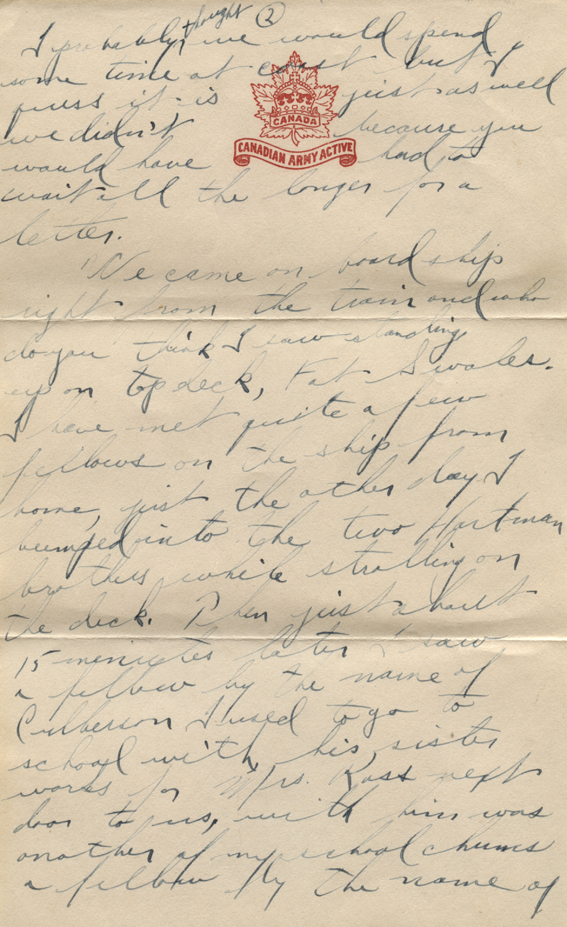 thought 2
I probably we would spend
some time at coast but I
guess it is just as well
we didn't because you
would have had to
wait all the longer for a
letter.
CANADA
CANADIAN ARMY ACTIVE
We came on board ship
right from the train and who
do you think I saw standing
up on top deck, Fat Swales.
I have met quite a few
fellows on the ship from
home, just the other day I
bumped into the two Hartman
brothers while strolling on
the deck. Then just about
15 minutes later I saw
a fellow by the name of
Culberson I used to go to
school with, his sister
works for Mrs. Ross next
door to us, with him was
another of my school chums
a fellow by the name of